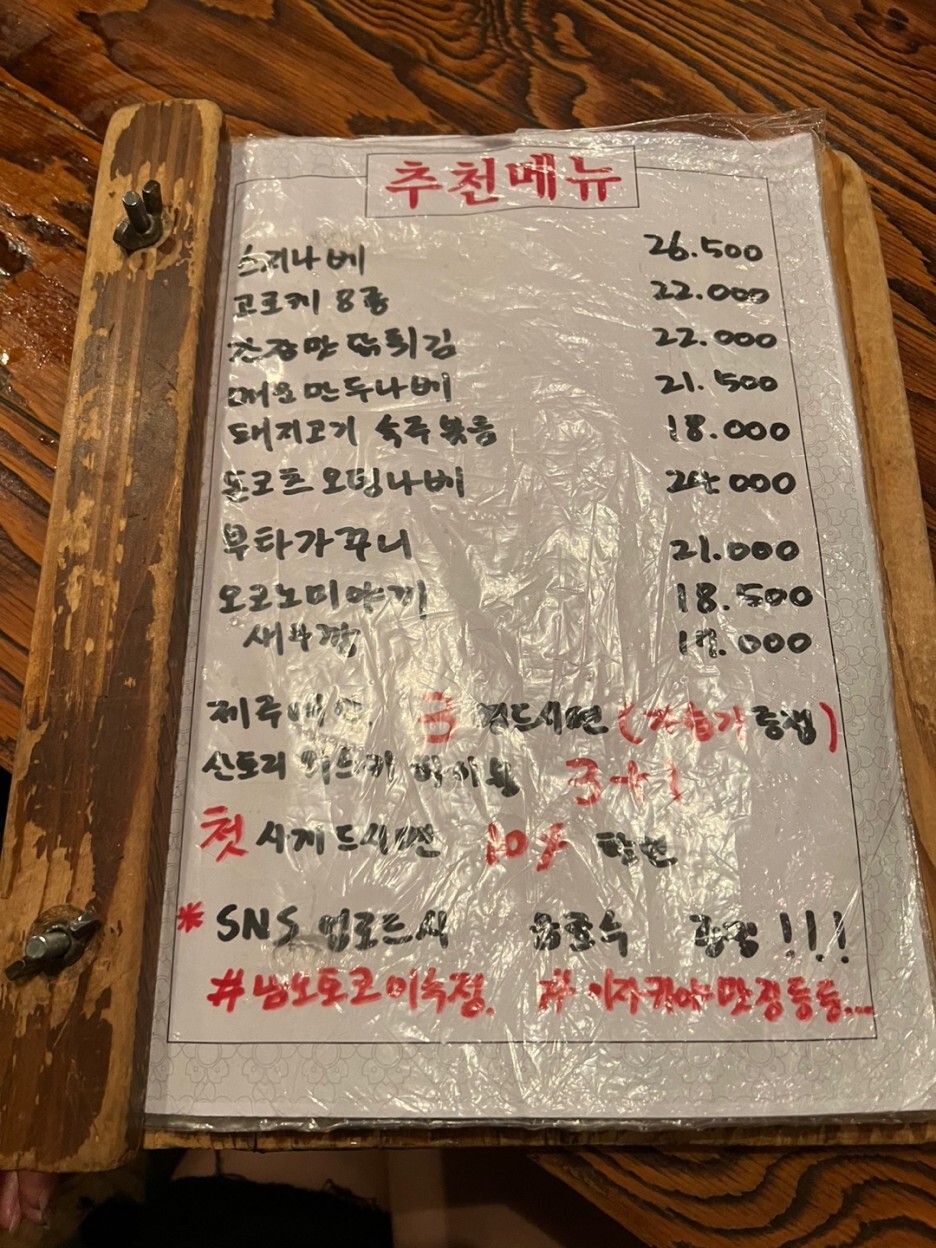 추천메뉴
스끼나베 26.500
고로케 8종 22.000
간장맛 닭튀김 22.000
매운만두나베 21.500
돼지고기 숙주볶음 18.000
돈코츠 오뎅나베 24.000
부타가꾸니 21.000
오코노미야끼 18.500
새우깡 17.000
제주 3 드시면 ( 증정)
산토리 위스키 하이볼 3+1
첫 시게드시면
*SNS 업로드시 음료수 !!!
#남노토코이수점. #이자카야맛집등등...